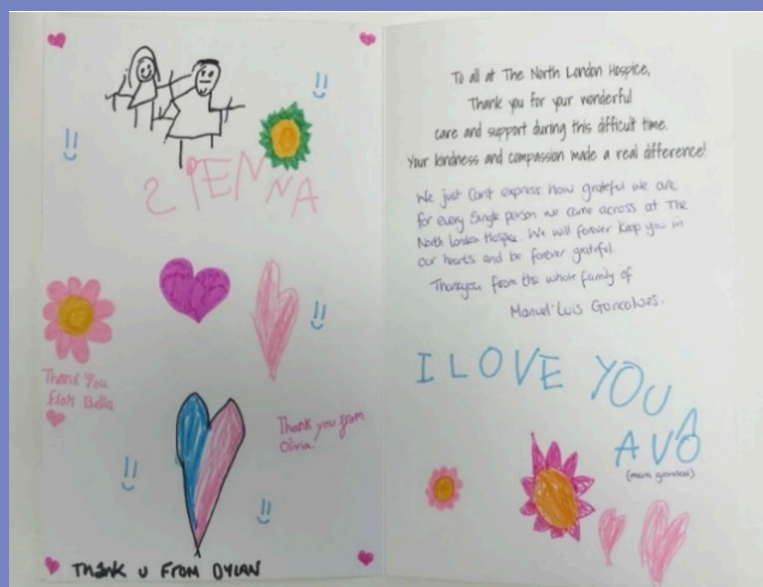 SIENNA
Thank You
from Bella
Thank you from
Olivia.
THANK U FROM DYLAN
To all at The North London Hospice,
Thank you for your wonderful
care and support during this difficult time.
Your kindness and compassion made a real difference!
We just Can't express how grateful we are
for every Single person we came across at The
North London Hospice. We will forever Keep you in
our hearts and be forever grateful.
Thankyou from the whole family of
Manuel Luis Goncalves.
I LOVE YOU
AVÔ
(means grandad)